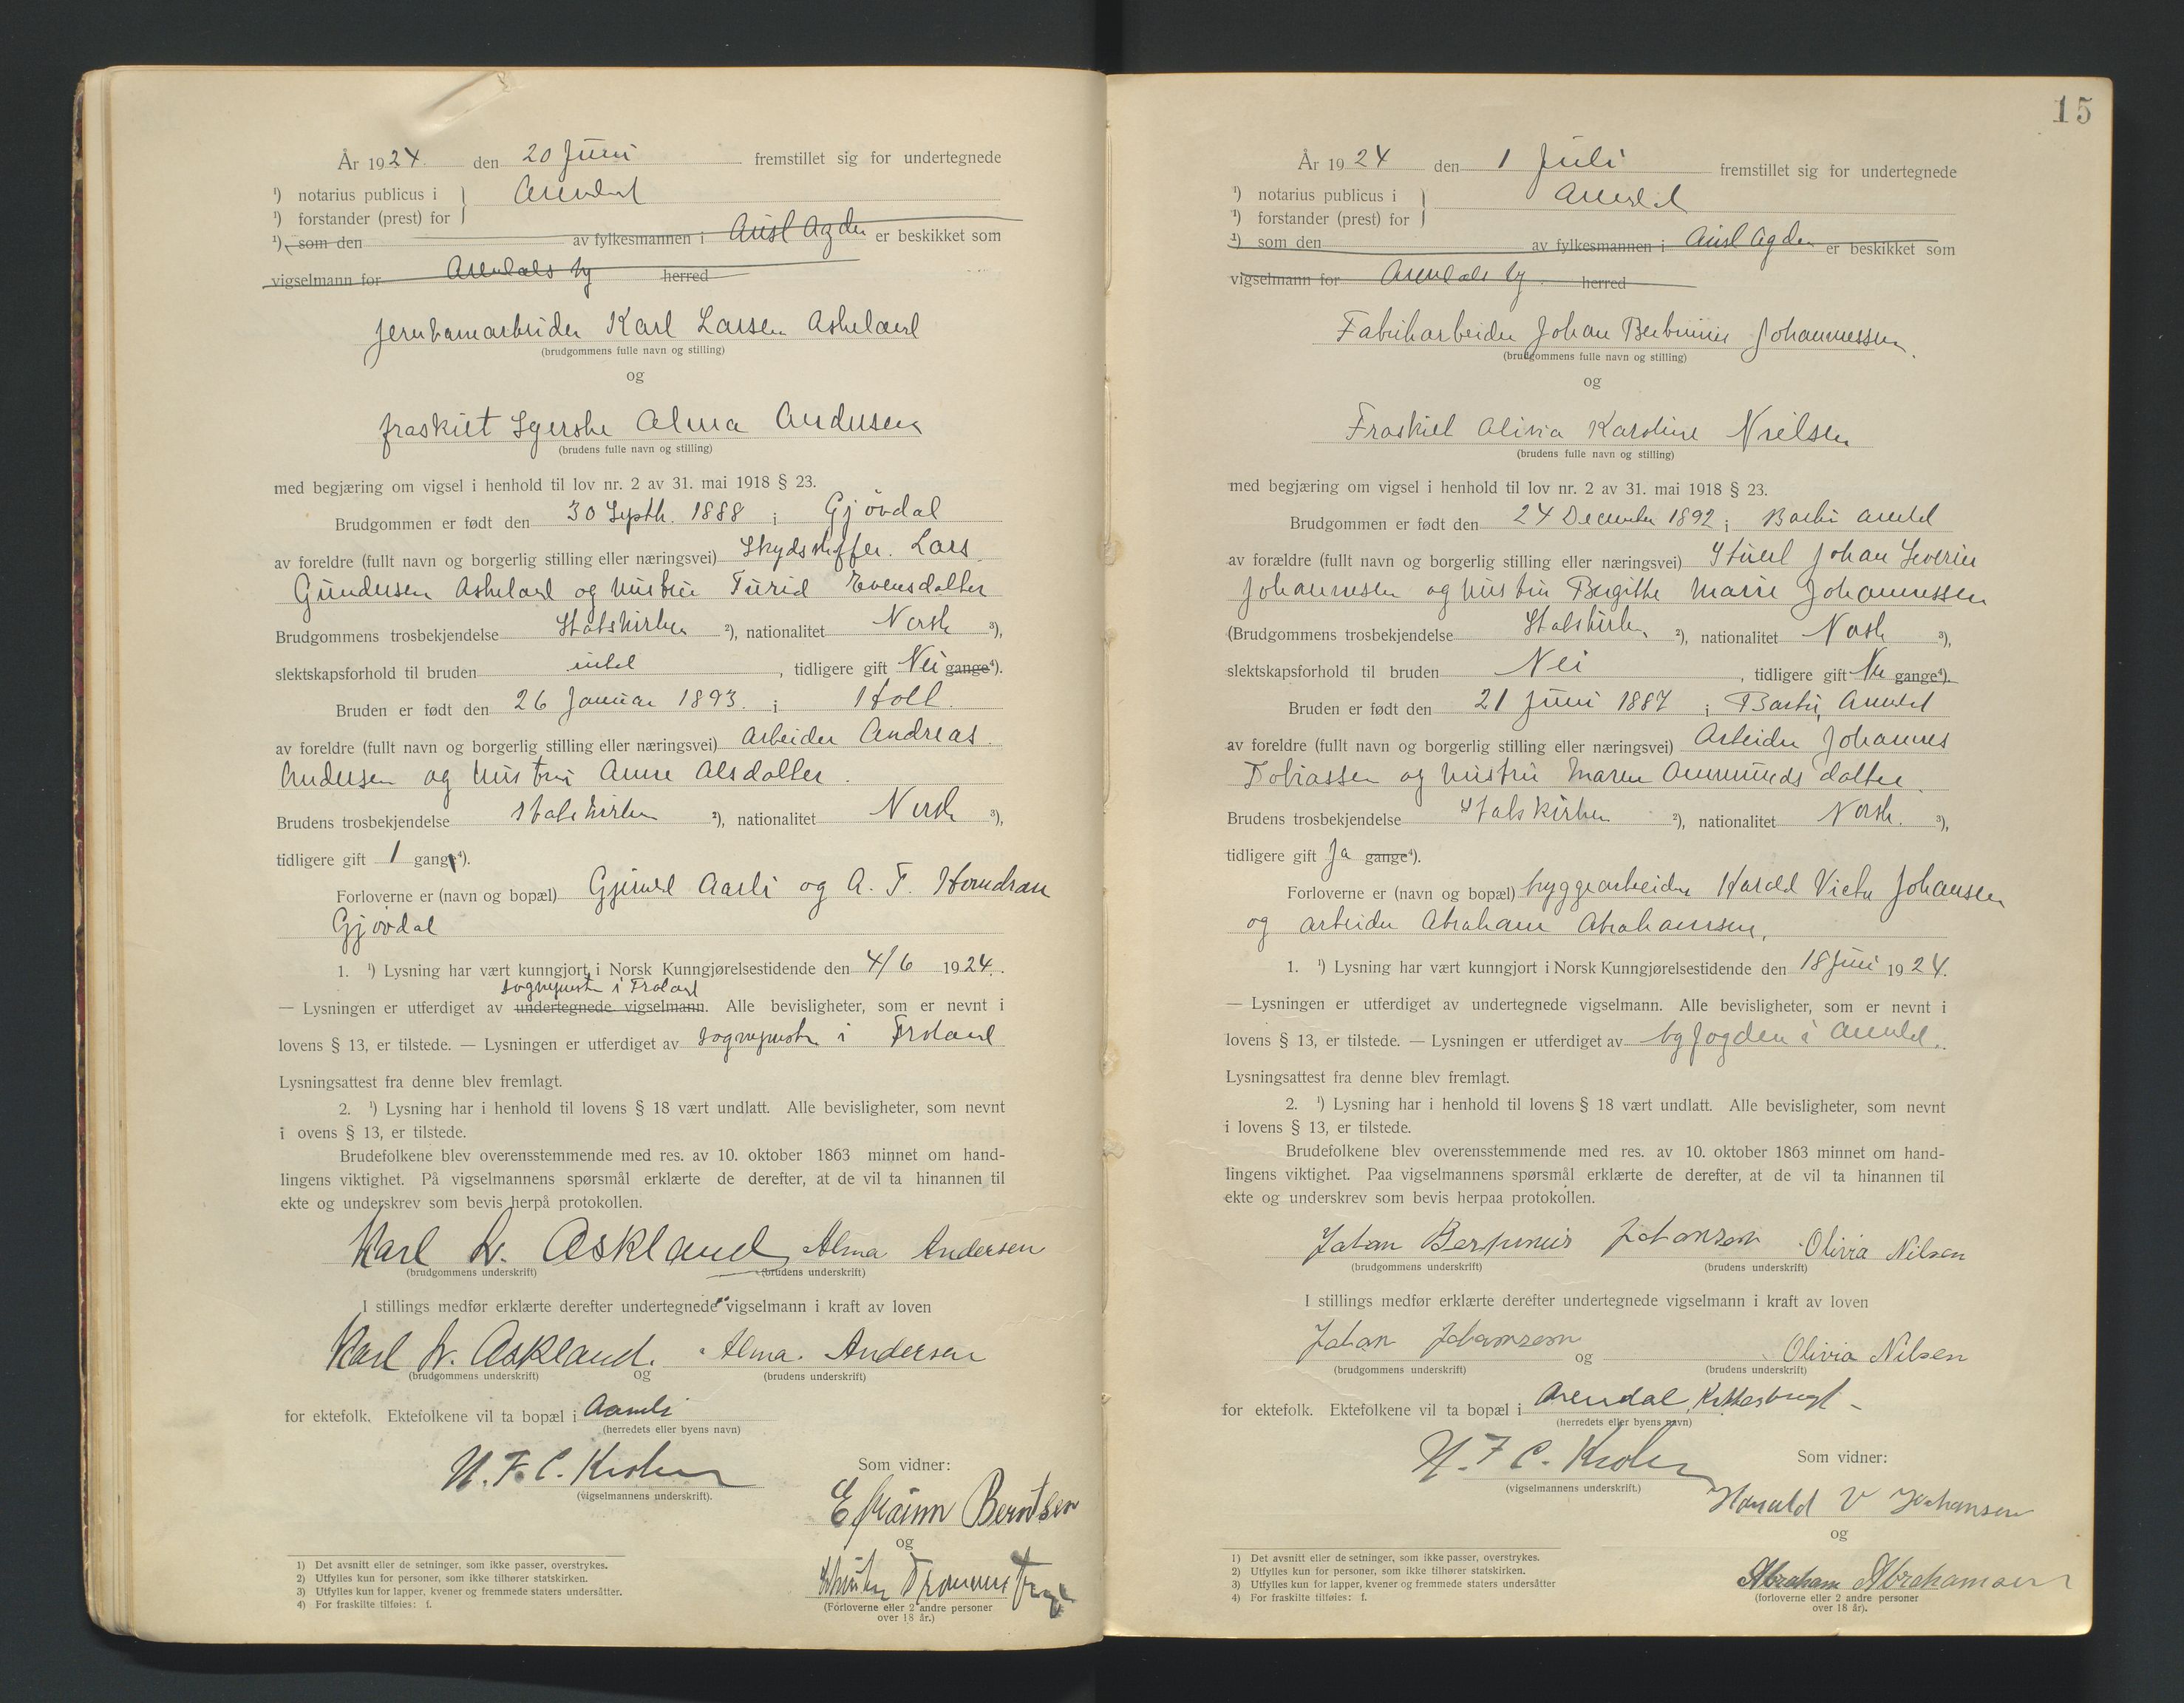 År 1924. den 20 Juni fremstillet sig for undertegnede
¹) notarius publicus i } Arendal
¹) forstander (prest) for
¹) som den av fylkesmannen i Aust Agder er beskikket som
vigselmann for Arendals by herred
Jernbanearbeider Karl Larsen Askeland
(brudgommens fulle navn og stilling)
og
fraskilt Syerske Alma Andersen
(brudens fulle navn og stilling)
med begjæring om vigsel i henhold til lov nr. 2 av 31. mai 1918 § 23.
Brudgommen er født den 30 Septb. 1888 i Gjövdal
av foreldre (fullt navn og borgerlig stilling eller næringsvei) Skydsskaffer. Lars
Gundersen Askeland og hustru Turid Evensdatter
Brudgommens trosbekjendelse Statskirken ²), nationalitet Norsk ³),
slektskapsforhold til bruden intet, tidligere gift Nei gange⁴).
Bruden er født den 26 Januar 1893. i Holt.
av foreldre (fullt navn og borgerlig stilling eller næringsvei) Arbeider Andreas
Andersen og hustru Anne Alsdatter.
Brudens trosbekjendelse Statskirken ²), nationalitet Norsk ³),
tidligere gift 1 gang⁴).
Forloverne er (navn og bopæl) Aasli og A. T.
Gjövdal
1. ¹) Lysning har vært kunngjort i Norsk Kunngjørelsestidende den 4/6 1924.
sogneprest i Froland
— Lysningen er utferdiget av undertegnede vigselmann. Alle bevisligheter, som er nevnt i
lovens § 13, er tilstede. — Lysningen er utferdiget av sogneprest i Froland
Lysningsattest fra denne blev fremlagt.
2. ¹) Lysning har i henhold til lovens § 18 vært undlatt. Alle bevisligheter, som nevnt
i ovens § 13, er tilstede.
Brudefolkene blev overensstemmende med res. av 10. oktober 1863 minnet om hand-
lingens viktighet. På vigselmannens spørsmål erklærte de derefter, at de vil ta hinannen til
ekte og underskrev som bevis herpå protokollen.
Karl L. Askland Alma Andersen
(brudgommens underskrift) (brudens underskrift)
I stillings medfør erklærte derefter undertegnede vigselmann i kraft av loven
Karl L. Askland. Alma. Andersen
(brudgommens underskrift) og (brudens underskrift)
for ektefolk. Ektefolkene vil ta bopæl i Aamli
(herredets eller byens navn)
N. F. C. Krohn
(vigselmannens underskrift).
Som vidner:
Efraim Berntsen
og
(Forloverne eller 2 andre personer
over 18 år.)
1) Det avsnitt eller de setninger, som ikke passer, overstrykes.
2) Utfylles kun for personer, som ikke tilhører statskirken.
3) Utfylles kun for lapper, kvener og fremmede staters undersåtter.
4) For fraskilte tilføies: f.
15
År 1924 den 1 Juli fremstillet sig for undertegnede
¹) notarius publicus i } Arendal
¹) forstander (prest) for
¹) som den av fylkesmannen i Aust Agder er beskikket som
vigselmann for Arendals by herred
Fabrikarbeider Johan Johannessen
(brudgommens fulle navn og stilling)
og
Fraskilt Olivia Karoline Nielsen
(brudens fulle navn og stilling)
med begjæring om vigsel i henhold til lov nr. 2 av 31. mai 1918 § 23.
Brudgommen er født den 24 December 1892 i Barbu Arendal
av forældre (fullt navn og borgerlig stilling eller næringsvei) Johan Severin
Johannesen og hustru Birgithe Marie Johannessen
(Brudgommens trosbekjendelse Statskirken ²), nationalitet Norsk ³),
slektskapsforhold til bruden Nei, tidligere gift Nei gange⁴).
Bruden er født den 21 Juni 1887 i Barbu, Arendal
av foreldre (fullt navn og borgerlig stilling eller næringsvei) Arbeider Johannes
Tobiassen og hustru Maren Ammundsdatter.
Brudens trosbekjendelse Statskirken ²), nationalitet Norsk. ³),
tidligere gift Ja gange⁴).
Forloverne er (navn og bopæl) bryggearbeider Harald Victor Johansen
og arbeider Abraham Abrahamsen,
1. ¹) Lysning har vært kunngjort i Norsk Kunngjørelsestidende den 18 Juni 1924.
— Lysningen er utferdiget av undertegnede vigselmann. Alle bevisligheter, som er nevnt i
lovens § 13, er tilstede. — Lysningen er utferdiget av byfogden i Arendal.
Lysningsattest fra denne blev fremlagt.
2. ¹) Lysning har i henhold til lovens § 18 vært undlatt. Alle bevisligheter, som nevnt
i lovens § 13, er tilstede.
Brudefolkene blev overensstemmende med res. av 10. oktober 1863 minnet om hand-
lingens viktighet. Paa vigselmannens spørsmål erklærte de derefter, at de vil ta hinannen til
ekte og underskrev som bevis herpaa protokollen.
Johan Johansen Olivia Nilsen
(brudgommens underskrift) (brudens underskrift)
I stillings medfør erklærte derefter undertegnede vigselmann i kraft av loven
Johan Johansen Olivia Nilsen
(brudgommens underskrift) og (brudens underskrift)
for ektefolk. Ektefolkene vil ta bopæl i Arendal, Kittelsbugt
(herredets eller byens navn)
N. F. C. Krohn
(vigselmannens underskrift.)
Som vidner:
Harald V Johansen
og
Abraham Abrahamsen
(forloverne eller 2 andre personer
over 18 år).
1) Det avsnitt eller de setninger, som ikke passer, overstrykes.
2) Utfylles kun for personer, som ikke tilhører statskirken.
3) Utfylles kun for lapper, kvener og fremmede staters undersåtter
4) For fraskilte tilføies: f.